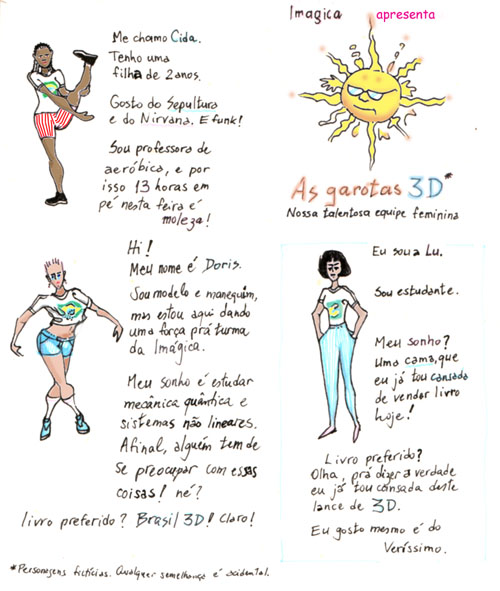 Imagica apresenta
As garotas 3D*
Nossa talentosa equipe feminina
Me chamo Cida.
Tenho uma
filha de 2 anos.
Gosto do Sepultura
e do Nirvana. E funk!
Sou professora de
aeróbica, e por
isso 13 horas em
pé nesta feira é
moleza!
Hi!
Meu nome é Doris.
Sou modelo e manequim,
mas estou aqui dando
uma força prá turma
da Imágica.
Meu sonho é estudar
mecânica quântica e
sistemas não lineares.
Afinal, alguém tem de
se preocupar com essas
coisas! né?
livro preferido? Brasil 3D! Claro!
Eu sou a Lu.
Sou estudante.
Meu sonho?
Uma cama, que
eu já tou cansada
de vender livro
hoje!
Livro preferido?
Olha, prá dizer a verdade
eu já tou cansada deste
lance de 3D.
Eu gosto mesmo é do
Veríssimo.
*Personagens fictícias. Qualquer semelhança é acidental.